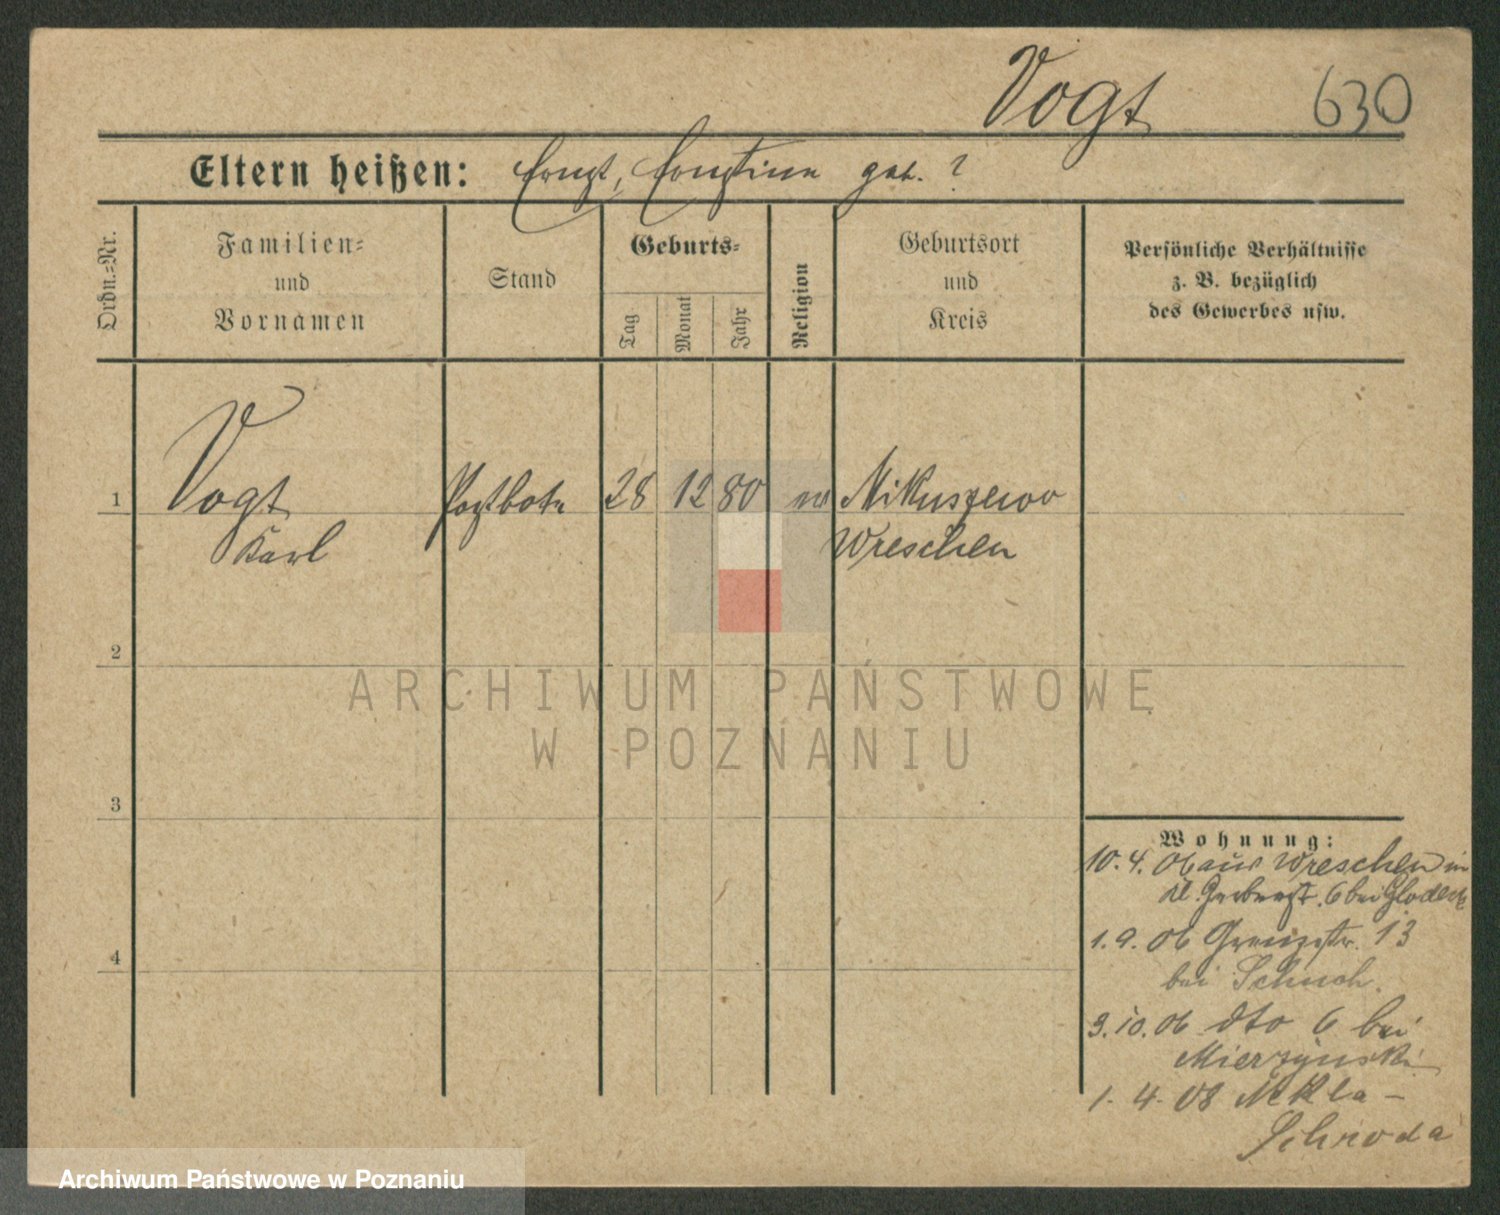 Vogt 630
Eltern heißen: Ernst, Ernstine geb. ?
Ordn.=Nr.
Familien=
und
Vornamen
Stand
Geburts=
Tag
Monat
Jahr
Religion
Geburtsort
und
Kreis
Persönliche Verhältnisse
z. B. bezüglich
des Gewerbes usw.
1 Vogt Postbote 28 12 80 ev Mikuszewo
Karl Wreschen
2
ARCHIWUM PAŃSTWOWE
W POZNANIU
3
Wohnung:
10. 4. 06 aus Wreschen in
kl. Gerberst. 6 bei
4
1. 9. 06 Grenzstr. 13
bei Schuch.
3. 10. 06 dto 6 bei
Mierzynski
1. 4. 08
Schroda
Archiwum Państwowe w Poznaniu